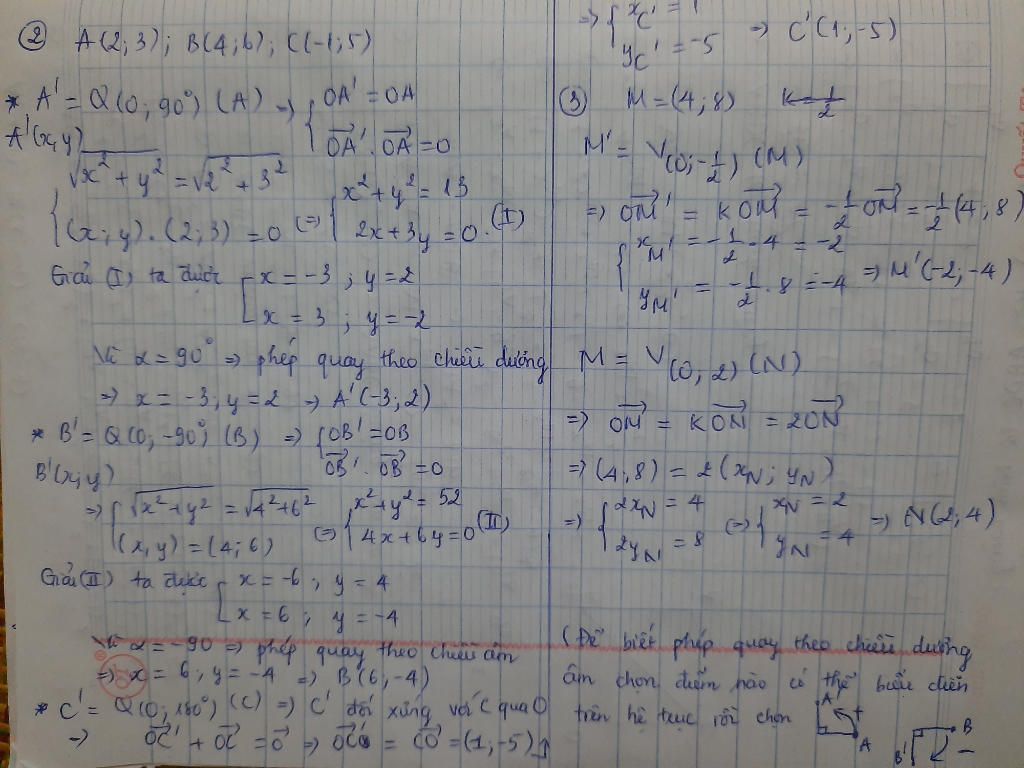 ② A(2;3); B(4;6); C(-1;5)
* A' = Q(0; 90°) (A) => { OA' = OA
OA'. OA = 0
A'(x,y)
{ √x² + y² = √2² + 3²
(x; y). (2; 3) = 0 (=> { x² + y² = 13
2x + 3y = 0. (I)
Giải (I) ta được [ x = -3 ; y = 2
x = 3 ; y = -2
Vì α = 90° => phép quay theo chiều dương
=> x = -3; y = 2 => A'(-3; 2)
* B' = Q(0; -90°) (B) => { OB' = OB
OB'. OB = 0
B'(x;y)
=> { √x² + y² = √4² + 6²
(x,y) = (4; 6) (=> { x² + y² = 52
4x + 6y = 0 (II)
Giải (II) ta được [ x = -6 ; y = 4
x = 6 ; y = -4
Vì α = -90 => phép quay theo chiều âm
=> x = 6; y = -4 => B'(6, -4)
* C' = Q(0; 180°) (C) => C' đối xứng với C qua O
=> OC' + OC = 0 => OC' = CO = (1; -5)
=> { x_C' = 1
y_C' = -5 => C'(1; -5)
③ M = (4; 8)
M' = V(0; -1/2) (M)
=> OM' = K OM = -1/2 OM = -1/2 (4; 8)
{ x_M' = -1/2 . 4 = -2
y_M' = -1/2 . 8 = -4 => M'(-2; -4)
M = V(0; 2) (N)
=> OM = K ON = 2ON
=> (4; 8) = 2(x_N; y_N)
=> { 2x_N = 4
2y_N = 8 (=> { x_N = 2
y_N = 4 => N(2; 4)
(Để biết phép quay theo chiều dương
âm chọn điểm nào có thể biểu diễn
trên hệ trục rồi chọn
A' +
A
B
B' -